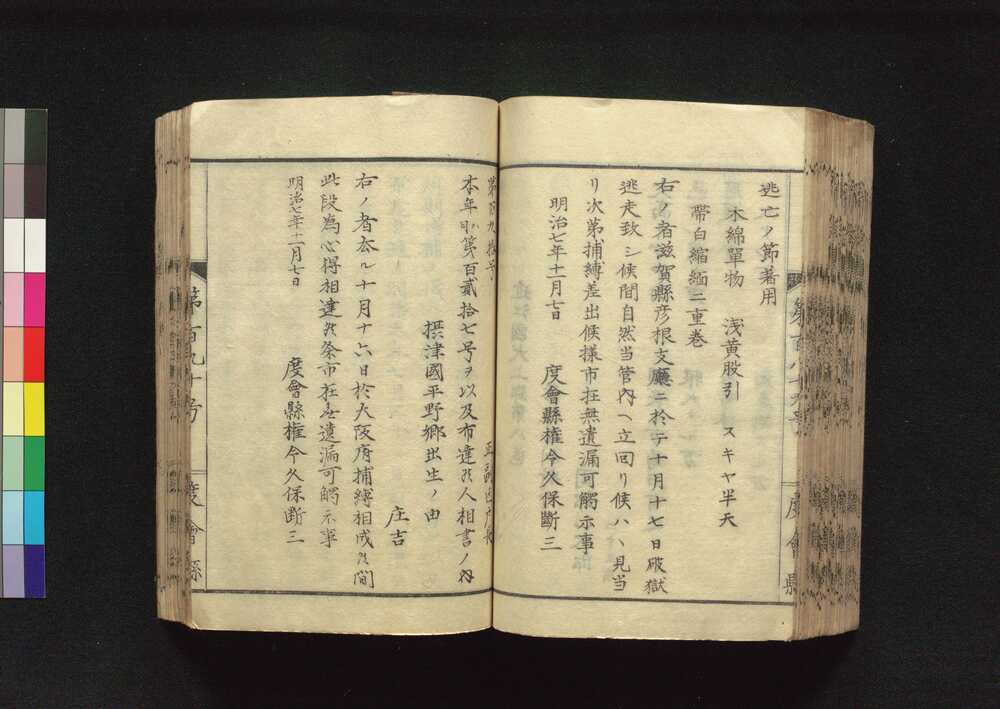 逃亡ノ節著用
木綿單物　浅黄股引　スキヤ半天
帶白縮緬二重巻
右ノ者滋賀縣彦根支廳ニ於テ十月十七日破獄
逃走致シ候間自然当管内ヘ立回リ候ハヽ見当
リ次第捕縛差出候様市在無遺漏可觸示事
明治七年十一月七日
度會縣權令久保斷三
第百八十九号
度會縣
第百九拾号
正副區戸長
本年第百貳拾七号ヲ以及布達候人相書ノ内
摂津國平野郷出生ノ由
庄吉
右ノ者去ル十月十六日於大阪府捕縛相成候間
此段為心得相達候条市在無遺漏可觸示事
明治七年十一月七日
度會縣權令久保斷三
第百九十号
度會縣